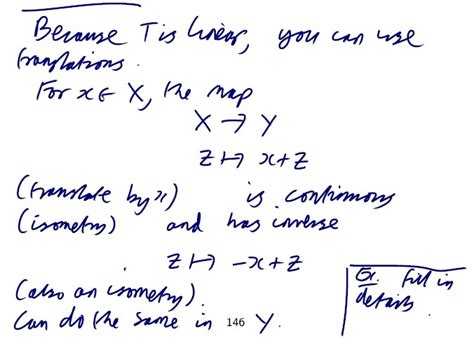 Because T is linear, you can use
translations.
For x ∈ X, the map
X → Y
z ↦ x+z
(translate by x) is continuous
(isometry) and has inverse
z ↦ -x+z
(also an isometry).
Ex. fill in
details
Can do the same in Y.
146